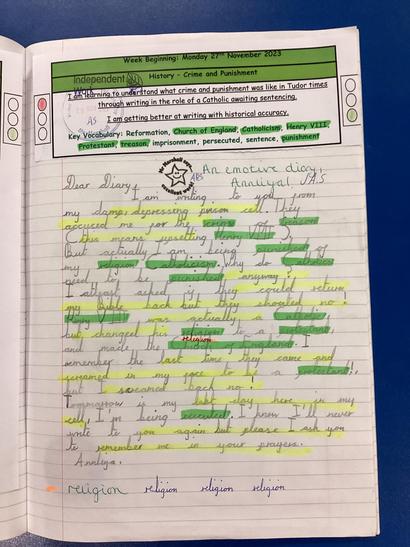 Week Beginning: Monday 27th November 2023
Independent Work
History - Crime and Punishment
I am learning to understand what crime and punishment was like in Tudor times
through writing in the role of a Catholic awaiting sentencing.
AS
I am getting better at writing with historical accuracy.
Key Vocabulary: Reformation, Church of England, Catholicism, Henry VIII,
Protestant, treason, imprisonment, persecuted, sentence, punishment
Mr Marshall says
excellent work!
An emotive diary,
Anniya! AS
Dear Diary,
I am writing to you from
my damp, depressing prison cell. They
accused me for the crime of treason
(this means upsetting Henry VIII).
But actually I am being punished of
my religion Catholicism. Why do Catholics
need to be punished anyway?
I already asked if they could return
my Bible back but they shouted no!
Henry VIII was actually a catholic
but changed his religion to a protestant,
religion
and made the Church of England. I
remember the last time they came and
screamed in my face to be a protestant!,
but I screamed back no!
Tommorrow is my last day here in my
cell, I'm being executed. I know I'll never
write to you again but please I ask you
to remember me in your prayers.
Anniya.
religion religion religion religion